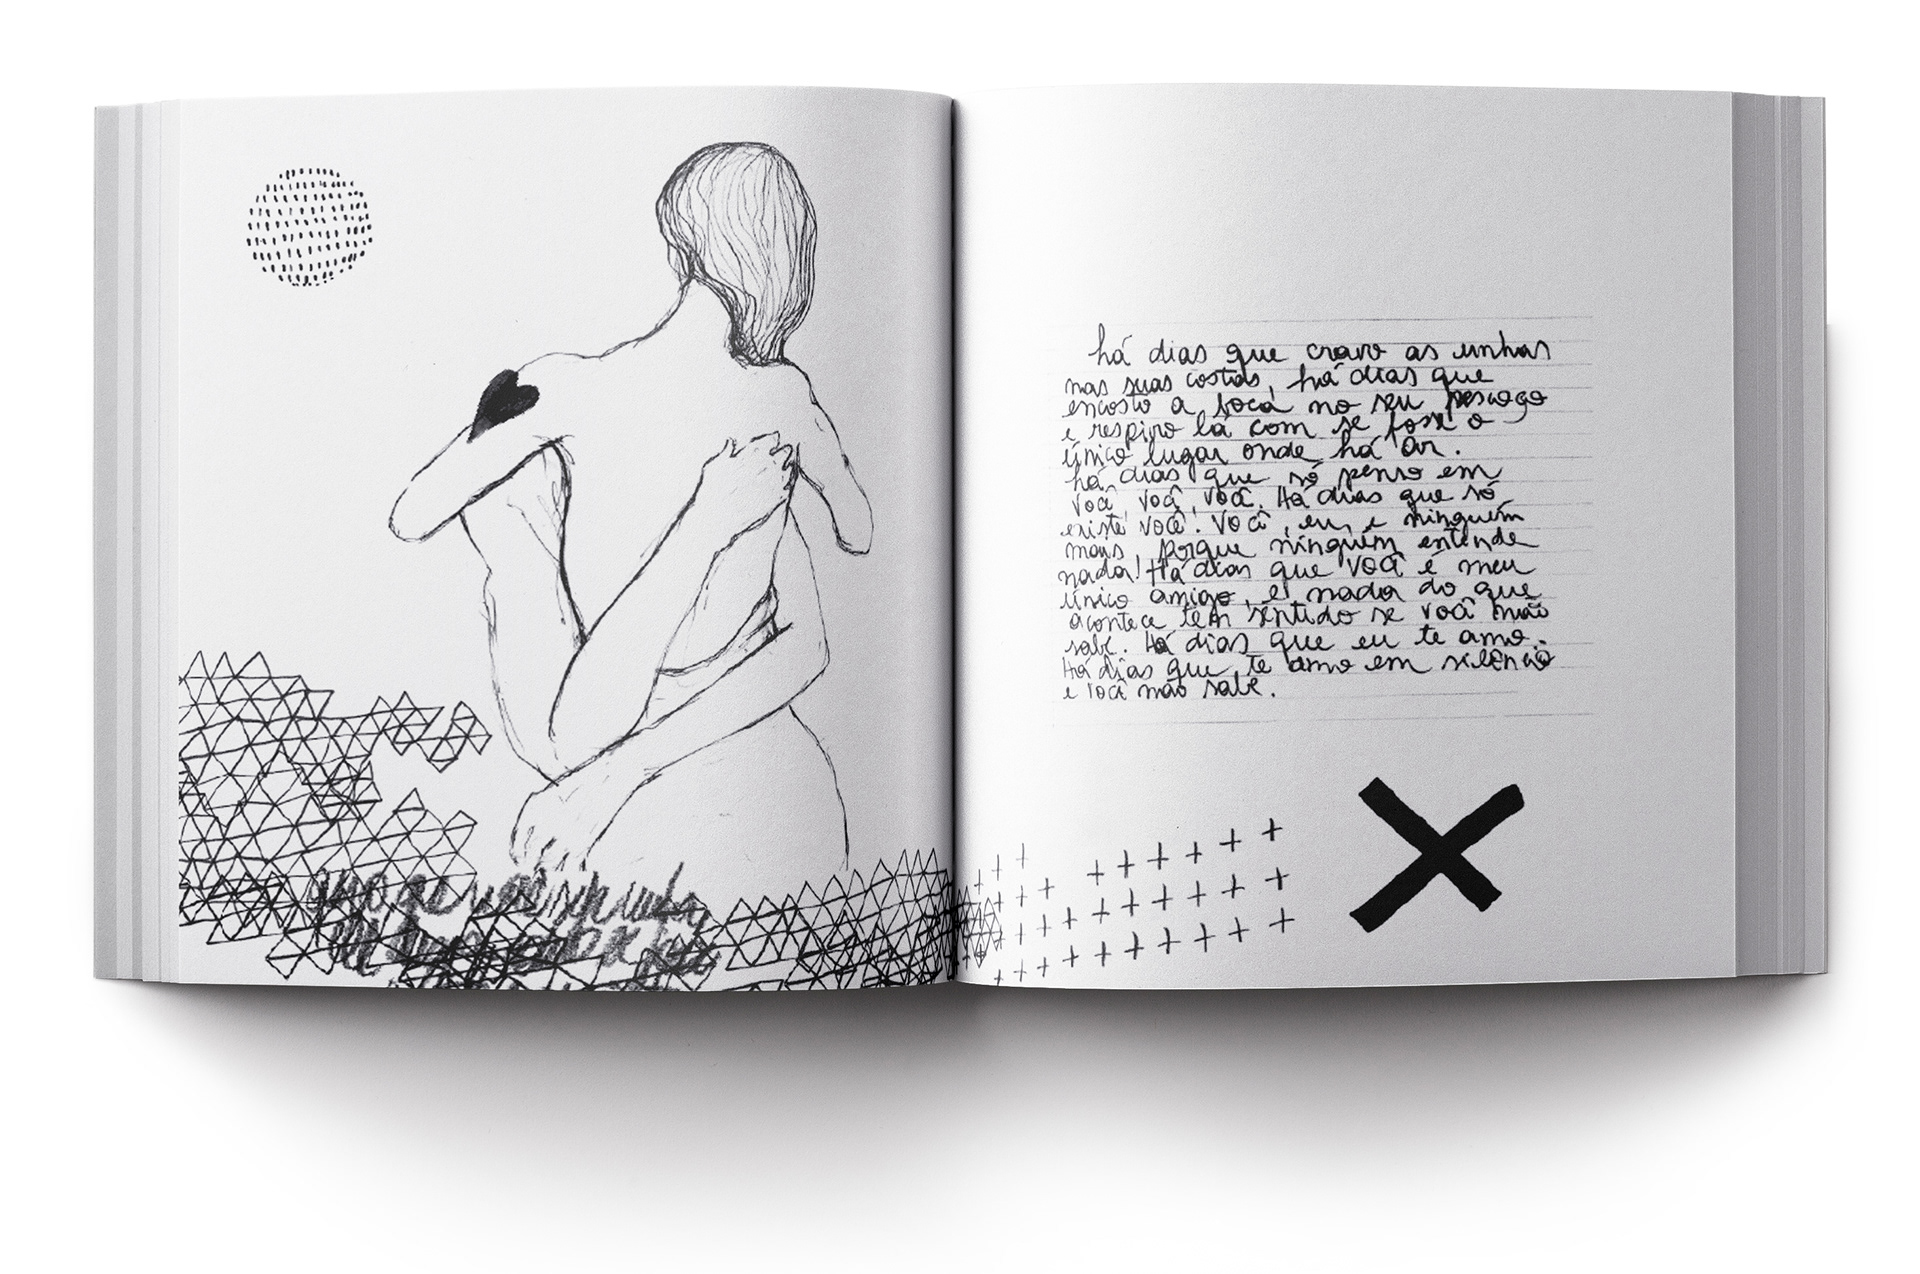 há dias que cravo as unhas
nas suas costas, há dias que
encosto a boca no seu pescoço
e respiro lá com se fosse o
único lugar onde há ar.
há dias que só penso em
você, você, você. Há dias que só
existe você! Você, eu, e ninguém
mais, porque ninguém entende
nada! Há dias que você é meu
único amigo, e nada do que
acontece tem sentido se você não
sabe. Há dias que eu te amo.
Há dias que te amo em silêncio
e você não sabe.